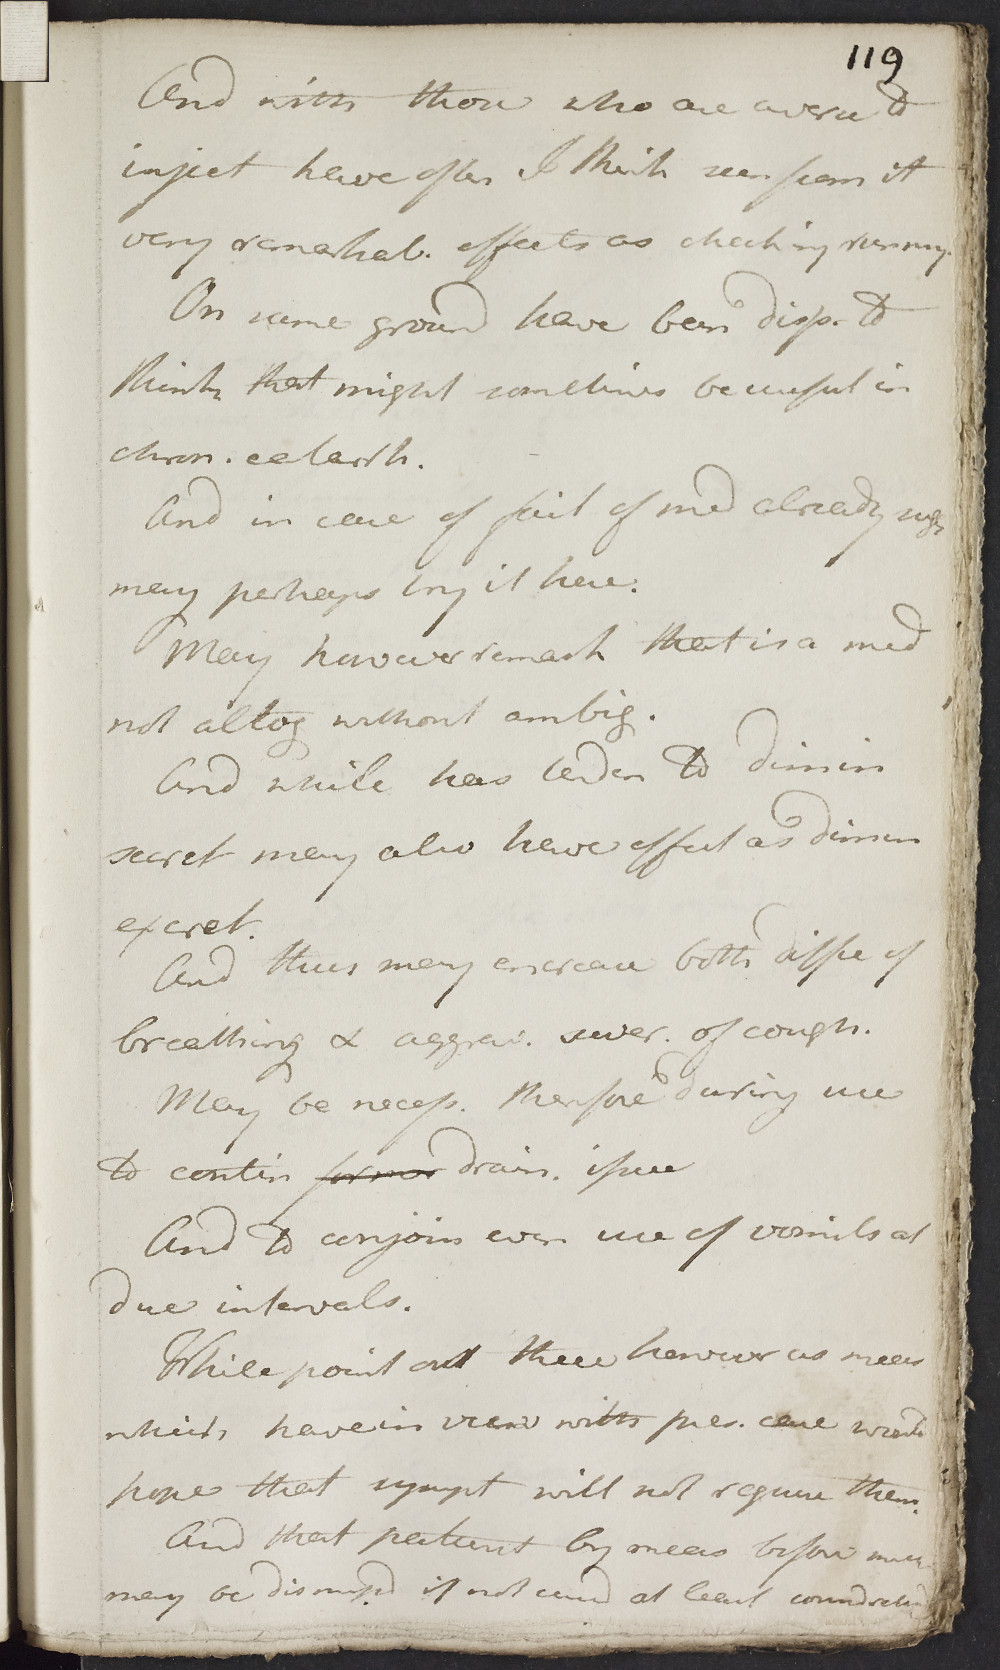 119
And with those who are averse to
inject have often I think seen from it
very remarkab. effects as checking running.
On same ground have been disp. to
think that might sometimes be useful in
chron. catarrh.
And in case of fail of med already sugg
may perhaps try it here.
May however remark that is a med
not altog without ambig.
And while has tenden to dimin
secret may also have effect as dimin
excret.
And thus may encrease both diffic of
breathing & aggrav. sever. of cough.
May be necess. therefore during use
to contin former drain. issue
And to conjoin even use of vomits at
due intervals.
While point out these however as meas
which have in view with pres. case would
hope that sympt will not require them.
And that patient by meas before
may be dismissd if not cured at least